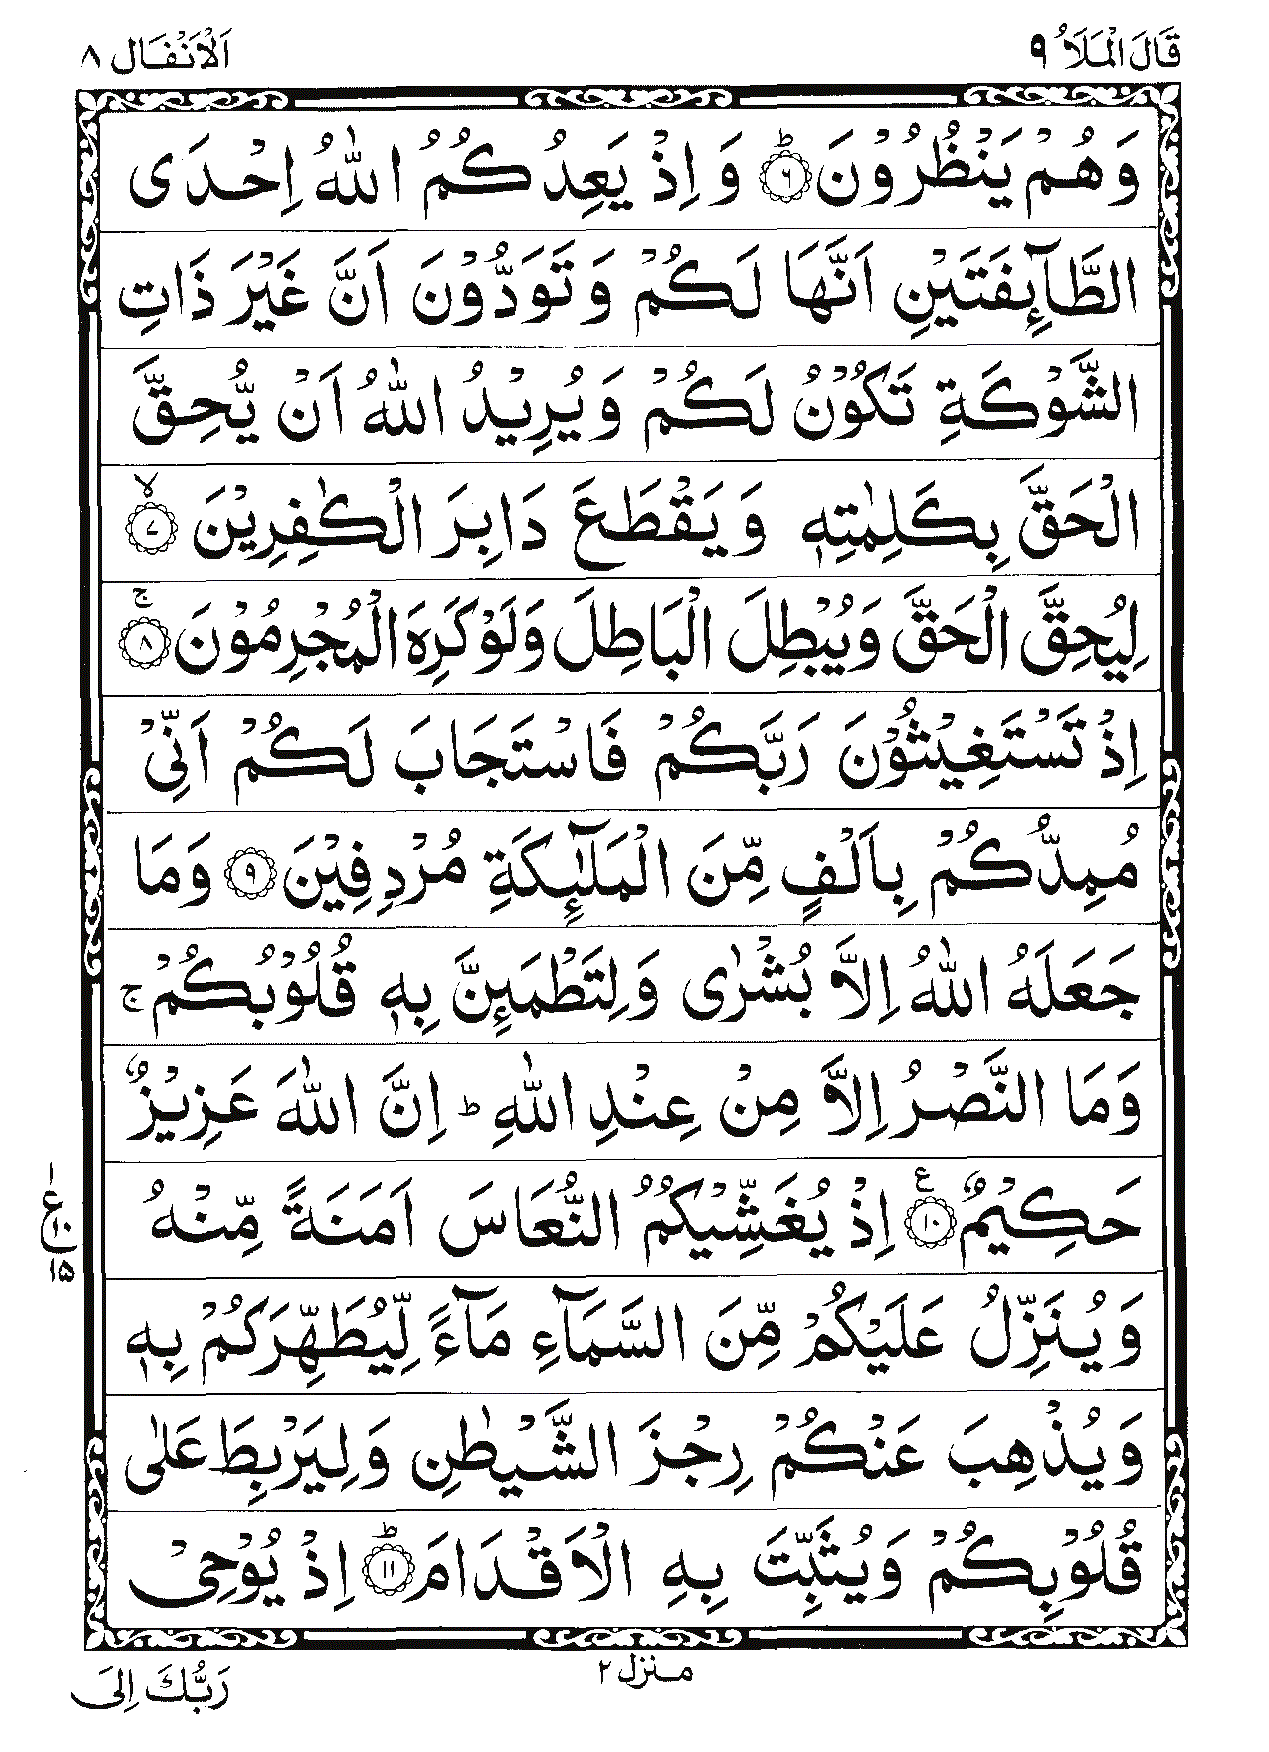 قَالَ الْمَلَاُ ۹
اَلْاَنْفَال ۸
وَهُمْ يَنْظُرُوْنَ ؕ﴿۶﴾ وَاِذْ يَعِدُكُمُ اللّٰهُ اِحْدَى
الطَّآئِفَتَيْنِ اَنَّهَا لَكُمْ وَتَوَدُّوْنَ اَنَّ غَيْرَ ذَاتِ
الشَّوْكَةِ تَكُوْنُ لَكُمْ وَيُرِيْدُ اللّٰهُ اَنْ يُّحِقَّ
الْحَقَّ بِكَلِمٰتِهٖ وَيَقْطَعَ دَابِرَ الْكٰفِرِيْنَ ۙ﴿۷﴾
لِيُحِقَّ الْحَقَّ وَيُبْطِلَ الْبَاطِلَ وَلَوْ كَرِهَ الْمُجْرِمُوْنَ ۚ﴿۸﴾
اِذْ تَسْتَغِيْثُوْنَ رَبَّكُمْ فَاسْتَجَابَ لَكُمْ اَنِّيْ
مُمِدُّكُمْ بِاَلْفٍ مِّنَ الْمَلٰٓئِكَةِ مُرْدِفِيْنَ ﴿۹﴾ وَمَا
جَعَلَهُ اللّٰهُ اِلَّا بُشْرٰى وَلِتَطْمَئِنَّ بِهٖ قُلُوْبُكُمْ ۚ
وَمَا النَّصْرُ اِلَّا مِنْ عِنْدِ اللّٰهِ ؕ اِنَّ اللّٰهَ عَزِيْزٌ
حَكِيْمٌ ﴿۱۰﴾ ع اِذْ يُغَشِّيْكُمُ النُّعَاسَ اَمَنَةً مِّنْهُ
۱
ع ۱۰
۱۵
وَيُنَزِّلُ عَلَيْكُمْ مِّنَ السَّمَآءِ مَآءً لِّيُطَهِّرَكُمْ بِهٖ
وَيُذْهِبَ عَنْكُمْ رِجْزَ الشَّيْطٰنِ وَلِيَرْبِطَ عَلٰى
قُلُوْبِكُمْ وَيُثَبِّتَ بِهِ الْاَقْدَامَ ؕ﴿۱۱﴾ اِذْ يُوْحِيْ
منزل ۲
رَبُّكَ اِلَى